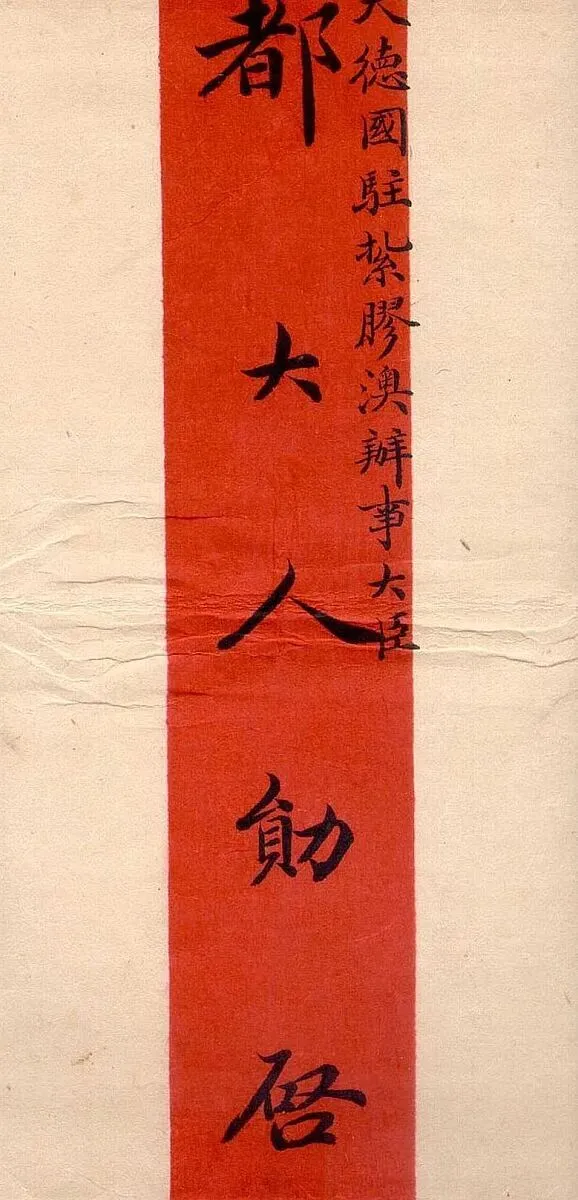 大德國駐紮膠澳辦事大臣
都大人勛啟